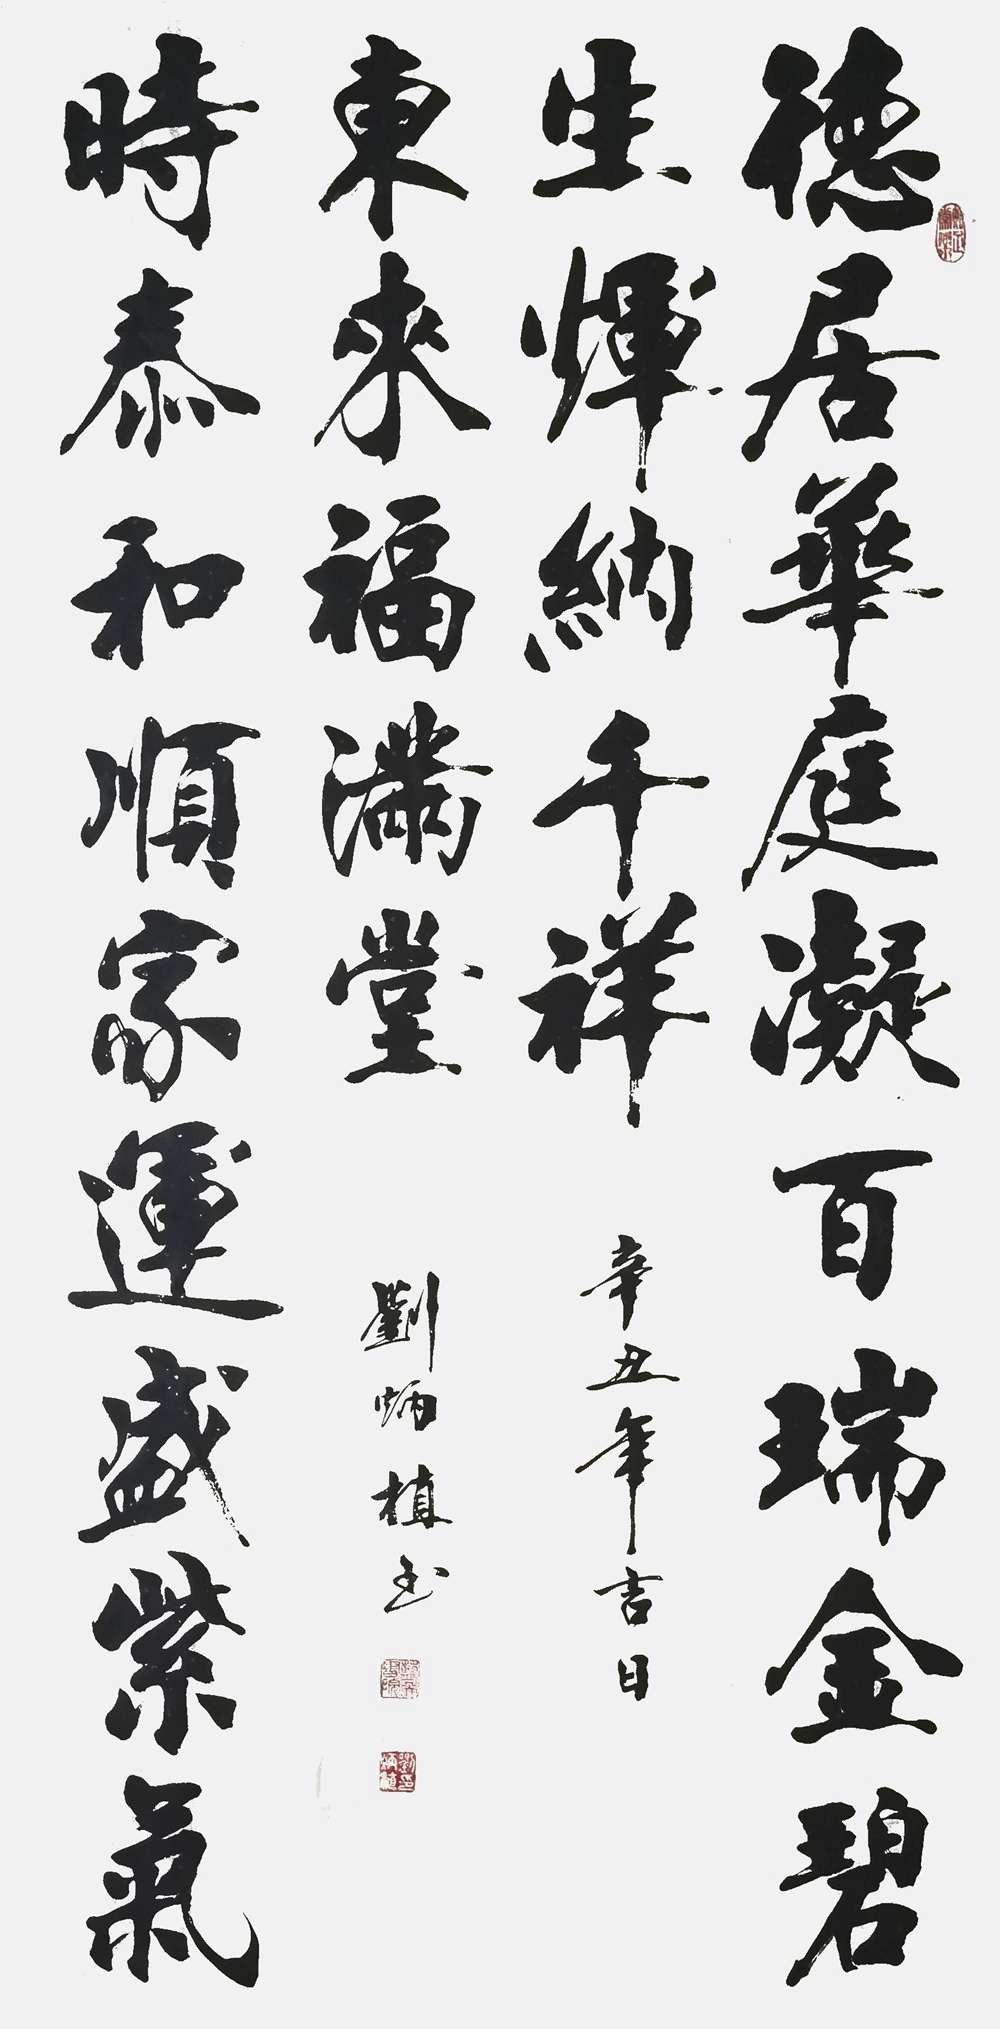 德居華庭凝百瑞金碧
生煇納千祥
辛丑年吉日
時泰和順家運盛紫氣
東來福滿堂
劉炳植书